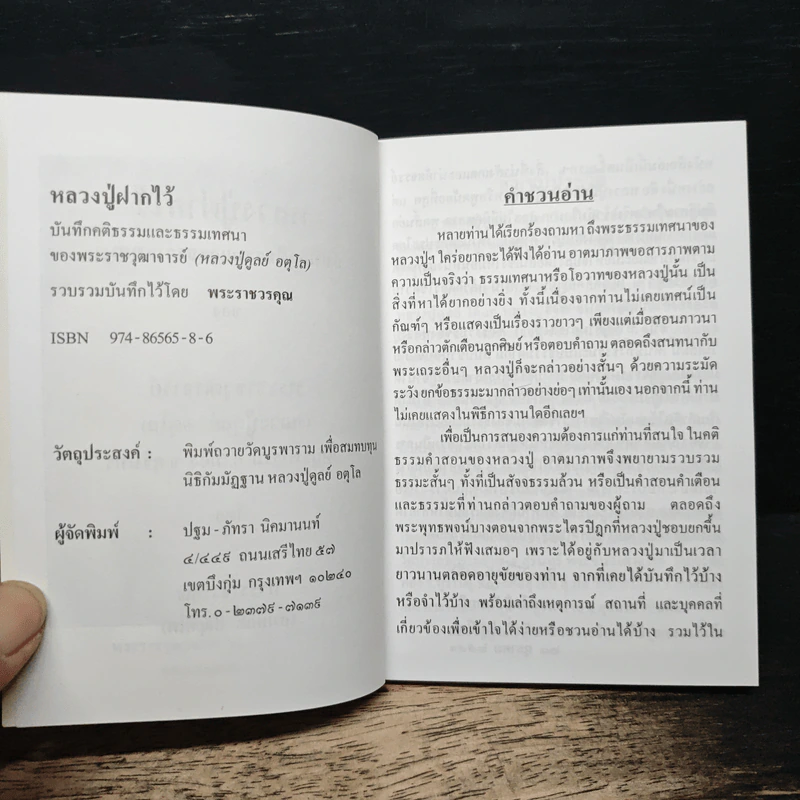 หลวงปู่ฝากไว้
บันทึกคติธรรมและธรรมเทศนา
ของพระราชวุฒาจารย์ (หลวงปู่ดูลย์ อตุโล)
รวบรวมบันทึกไว้โดย พระราชวรคุณ
ISBN 974-86565-8-6
วัตถุประสงค์ : พิมพ์ถวายวัดบูรพาราม เพื่อสมทบทุน
นิธิกัมมัฏฐาน หลวงปู่ดูลย์ อตุโล
ผู้จัดพิมพ์ : ปฐม - ภัทรา นิคมานนท์
๔/๔๔๙ ถนนเสรีไทย ๕๗
เขตบึงกุ่ม กรุงเทพฯ ๑๐๒๔๐
โทร. ๐-๒๓๗๙-๗๑๓๙
คำชวนอ่าน
หลายท่านได้เรียกร้องถามหา ถึงพระธรรมเทศนาของ
หลวงปู่ฯ ใคร่อยากจะได้ฟังได้อ่าน อาตมาภาพขอสารภาพตาม
ความเป็นจริงว่า ธรรมเทศนาหรือโอวาทของหลวงปู่นั้น เป็น
สิ่งที่หาได้ยากอย่างยิ่ง ทั้งนี้เนื่องจากท่านไม่เคยเทศน์เป็น
กัณฑ์ๆ หรือแสดงเป็นเรื่องราวยาวๆ เพียงแต่เมื่อสอนภาวนา
หรือกล่าวตักเตือนลูกศิษย์ หรือตอบคำถาม ตลอดถึงสนทนากับ
พระเถระอื่นๆ หลวงปู่ก็จะกล่าวอย่างสั้นๆ ด้วยความระมัด
ระวัง ยกข้อธรรมะมากล่าวอย่างย่อๆ เท่านั้นเอง นอกจากนี้ ท่าน
ไม่เคยแสดงในพิธีการงานใดอีกเลยฯ
เพื่อเป็นการสนองความต้องการแก่ท่านที่สนใจ ในคติ
ธรรมคำสอนของหลวงปู่ อาตมาภาพจึงพยายามรวบรวม
ธรรมะสั้นๆ ทั้งที่เป็นสัจจธรรมล้วน หรือเป็นคำสอนคำเตือน
และธรรมะที่ท่านกล่าวตอบคำถามของผู้ถาม ตลอดถึง
พระพุทธพจน์บางตอนจากพระไตรปิฎกที่หลวงปู่ชอบยกขึ้น
มาปรารภให้ฟังเสมอๆ เพราะได้อยู่กับหลวงปู่มาเป็นเวลา
ยาวนานตลอดอายุขัยของท่าน จากที่เคยได้บันทึกไว้บ้าง
หรือจำไว้บ้าง พร้อมเล่าถึงเหตุการณ์ สถานที่ และบุคคลที่
เกี่ยวข้องเพื่อเข้าใจได้ง่ายหรือชวนอ่านได้บ้าง รวมไว้ใน